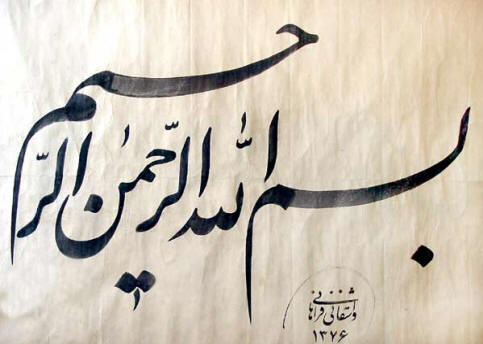 بسم الله الرحمن الرحیم
واشقانی فراهانی
۱۳۷۶